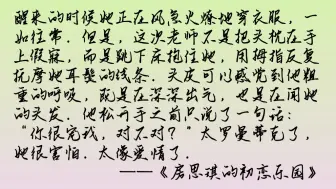 醒来的时候她正在风急火燎地穿衣服，一
如往常．但是，这次老师不是把头枕在手
上假寐，而是跳下床抱住她，用拇指反复
抚摩她耳鬓的线条．头皮可以感觉到他粗
重的呼吸，既是在深深出气，也是在闻她
的头发．他松开手之前只说了一句话：
“你很宠我，对不对？”太罗曼蒂克了，
她很害怕．太像爱情了．
——《房思琪的初恋乐园》